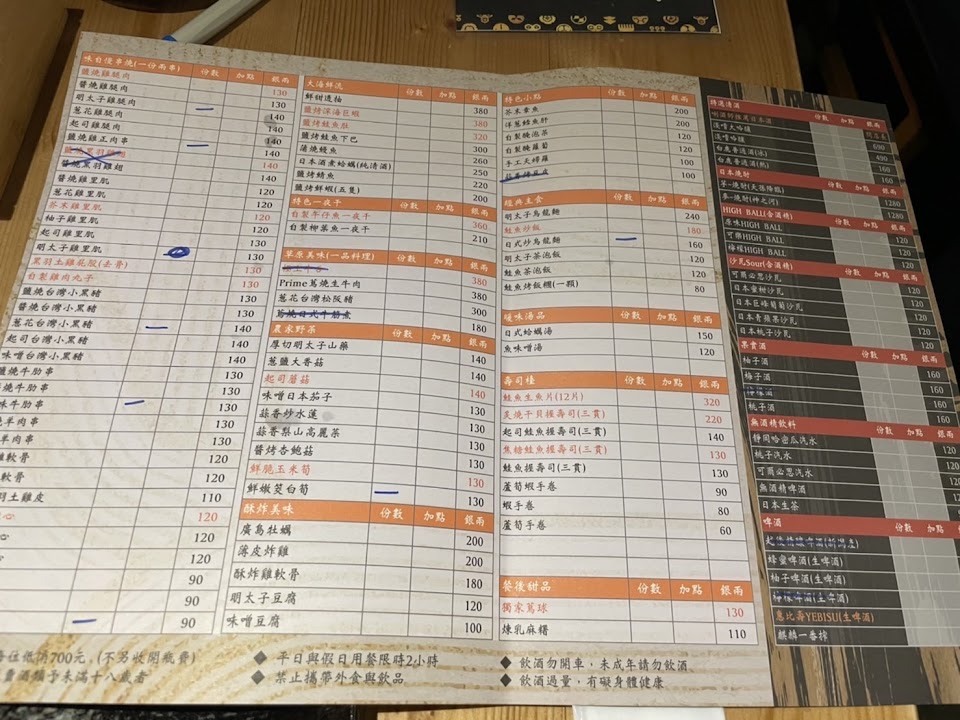 味自慢串燒(一份兩串) 份數 加點 銀兩
鹽燒雞腿肉 130
醬燒雞腿肉 130
明太子雞腿肉 140
蔥花雞腿肉 140
起司雞腿肉 140
鹽燒雞正肉串 140
醬燒黑羽雞翅 140
醬燒雞里肌 120
蔥花雞里肌 120
芥末雞里肌 120
柚子雞里肌 120
起司雞里肌 130
明太子雞里肌 130
黑羽土雞花股(去骨) 130
自製雞肉丸子 130
鹽燒台灣小黑豬 130
醬燒台灣小黑豬 130
蔥花台灣小黑豬 140
起司台灣小黑豬 140
味噌台灣小黑豬 140
鹽燒牛肋串 130
醬燒牛肋串 130
味牛肋串 130
燒羊肉串 130
羊肉串 130
雞軟骨 120
軟骨 120
羽土雞皮 110
心 120
心 120
120
90
90
90
大海鮮流 份數 加點 銀兩
鮮甜透抽 380
鹽烤深海巨蝦 380
鹽烤鮭魚肚 320
鹽烤鮭魚下巴 300
蒲燒鰻魚 260
日本酒煮蛤蠣(純清酒) 250
鹽烤鯖魚 220
鹽烤鮮蝦(五隻) 200
特色一夜干 份數 加點 銀兩
自製午仔魚一夜干 360
自製柳葉魚一夜干 210
草原美味(一品料理) 份數 加點 銀兩
380
Prime蔥燒生牛肉 380
蔥花台灣松阪豬 300
蔥燒日式牛筋煮 180
農家野菜 份數 加點 銀兩
厚切明太子山藥 140
蔥鹽大香菇 140
起司蘑菇 140
味噌日本茄子 130
蒜香炒水蓮 130
蒜香梨山高麗菜 130
醬烤杏鮑菇 130
鮮脆玉米筍 130
鮮嫩筊白筍 130
酥炸美味 份數 加點 銀兩
廣島牡蠣 200
薄皮炸雞 200
酥炸雞軟骨 180
明太子豆腐 120
味噌豆腐 100
特色小點 份數 加點 銀兩
芥末章魚 200
洋蔥鮭魚肝 200
自製醃泡菜 120
自製醃蘿蔔 120
手工天婦羅 100
蒜香烤豆皮 100
經典主食 份數 加點 銀兩
明太子烏龍麵 240
鮭魚炒飯 180
日式炒烏龍麵 160
明太子茶泡飯 120
鮭魚茶泡飯 120
鮭魚烤飯糰(一顆) 80
暖味湯品 份數 加點 銀兩
日式蛤蠣湯 150
魚味噌湯 120
壽司檯 份數 加點 銀兩
鮭魚生魚片(12片) 320
炙燒干貝握壽司(三貫) 220
起司鮭魚握壽司(三貫) 140
焦糖鮭魚握壽司(三貫) 130
鮭魚握壽司(三貫) 130
蘆筍蝦手卷 90
蝦手卷 80
蘆筍手卷 60
餐後甜品 份數 加點 銀兩
獨家蔦球 130
煉乳麻糬 110
精選清酒 份數 加點 銀兩
690
台鹿普通酒(冰) 490
台鹿普通酒(熱) 160
日本燒酎 份數 加點 銀兩
芋-燒酎(天孫降臨) 1280
麥-燒酎(神之河) 1280
HIGH BALL(含酒精) 份數 加點 銀兩
原味HIGH BALL 120
可樂HIGH BALL 120
檸檬HIGH BALL 120
沙瓦Sour(含酒精) 份數 加點 銀兩
可爾必思沙瓦 120
日本蜜柑沙瓦 120
日本巨峰葡萄沙瓦 120
日本青蘋果沙瓦 120
日本桃子沙瓦 120
果實酒 份數 加點 銀兩
柚子酒 160
梅子酒 160
160
桃子酒 160
無酒精飲料 份數 加點 銀兩
靜岡哈密瓜汽水 120
桃子汽水 120
可爾必思汽水 120
無酒精啤酒 120
日本生茶
啤酒 份數 加點 銀兩
蜂蜜啤酒(生啤酒)
柚子啤酒(生啤酒)
檸檬啤酒(生啤酒)
惠比壽YEBISU(生啤酒)
麒麟一番搾
每位低消700元,(不另收開瓶費)
賣酒類予未滿十八歲者
◆ 平日與假日用餐限時2小時
◆ 禁止攜帶外食與飲品
◆ 飲酒勿開車，未成年請勿飲酒
◆ 飲酒過量，有礙身體健康